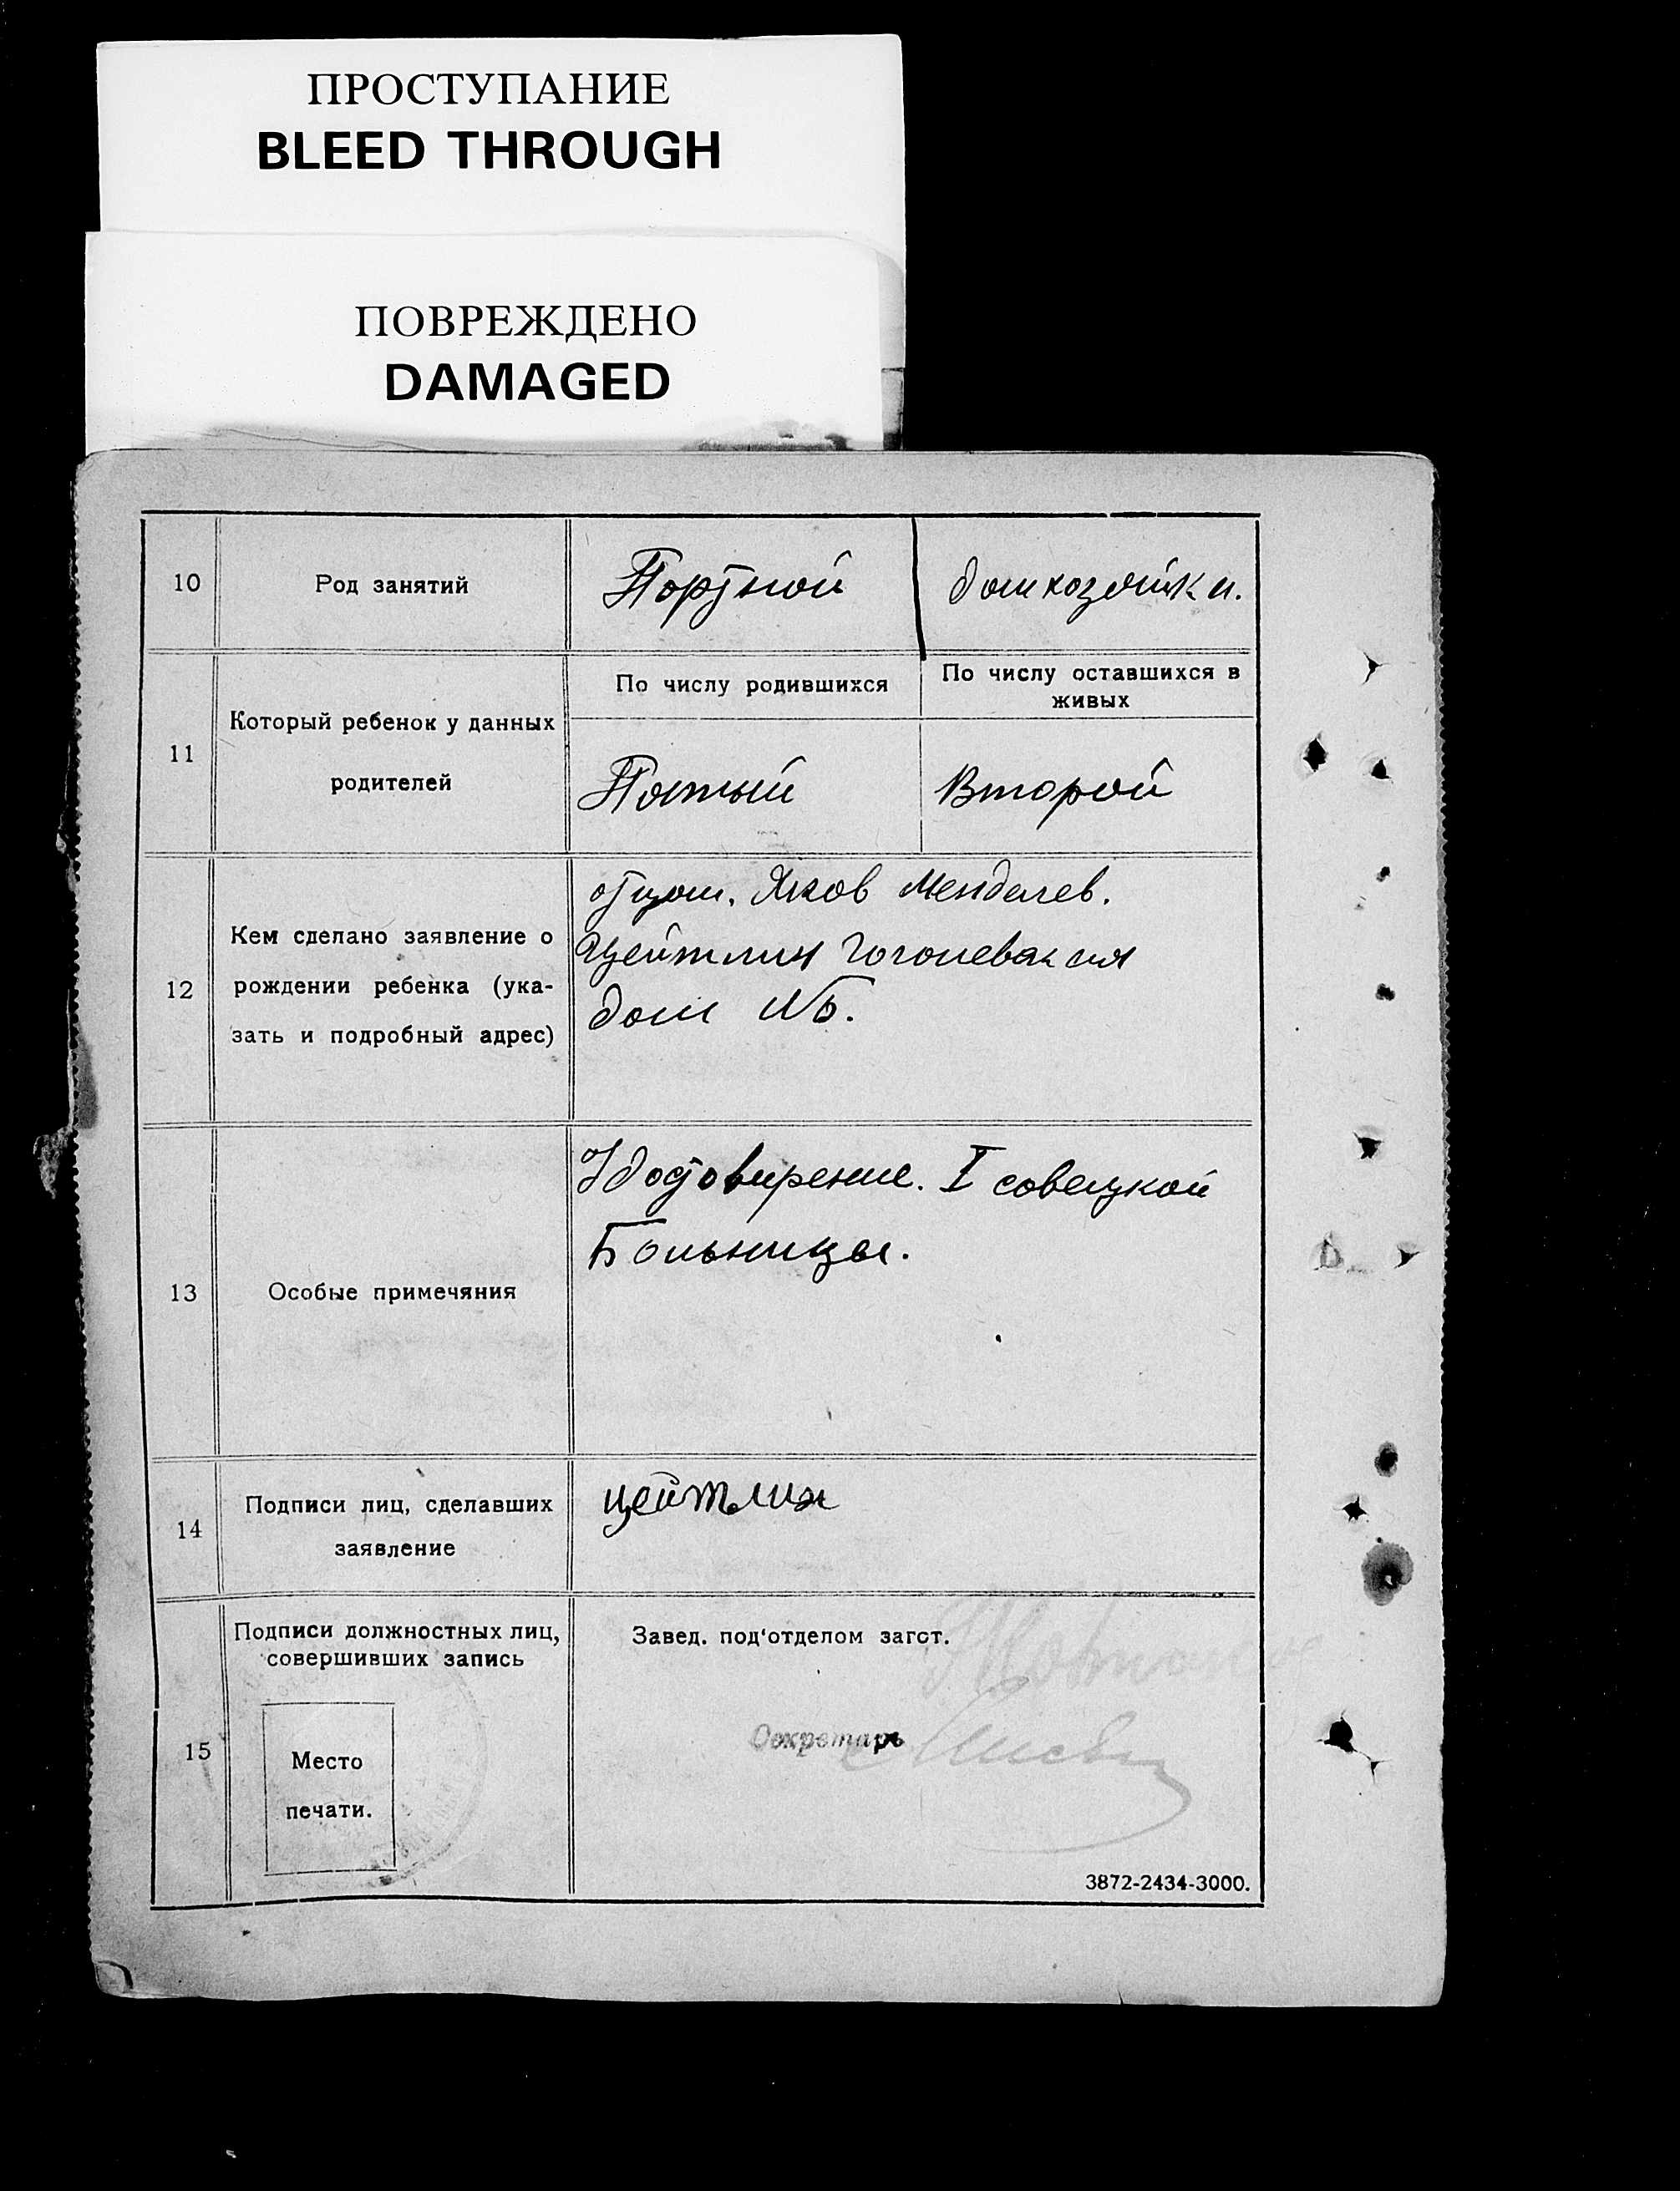 ПРОСТУПАНИЕ
BLEED THROUGH
ПОВРЕЖДЕНО
DAMAGED
10 Род занятий Портной домхозяйки.
11 Который ребенок у данных родителей
По числу родившихся
По числу оставшихся в живых
Пятый Второй
12 Кем сделано заявление о
рождении ребенка (ука-
зать и подробный адрес)
отцом. Яков Менделев.
Цейтлин Гоголевская
дом №
13 Особые примечяния
Удостоверение. I совецкой
Больницы.
14 Подписи лиц, сделавших
заявление
цейтлин
15 Подписи должностных лиц,
совершивших запись
Место
печати.
Завед. под'отделом загст.
Секретарь
3872-2434-3000.